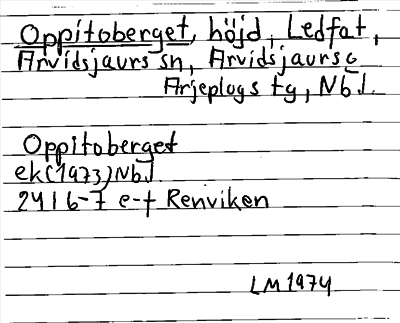 Oppitoberget, höjd, Ledfat,
Arvidsjaurs sn, Arvidsjaurs o
Arjeplogs tg, Nb.l.
Oppitoberget
ek(1973)Nb.l.
24I6-7 e-f Renviken
LM1974